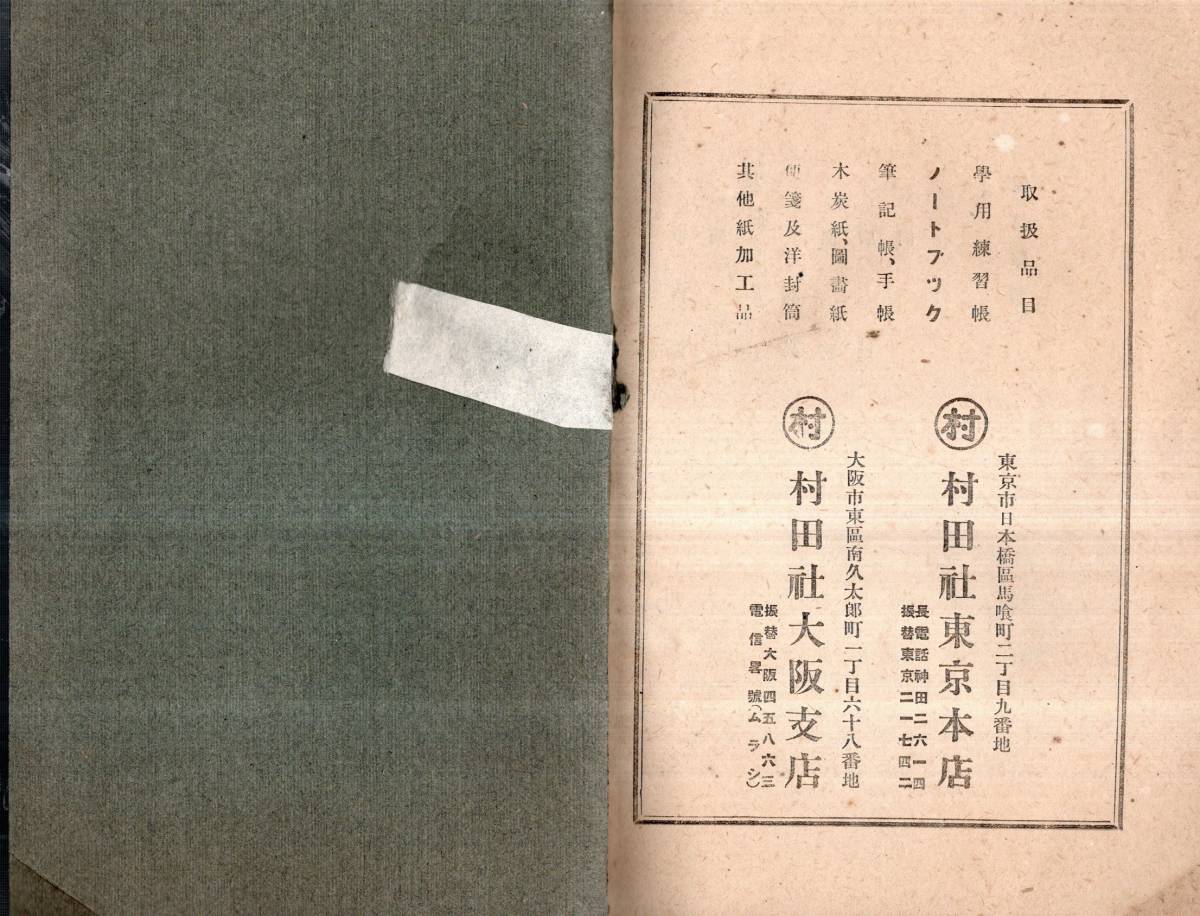 取扱品目
學用練習帳
ノートブック
筆記帳、手帳
木炭紙、圖畫紙
便箋及洋封筒
其他紙加工品
東京市日本橋區馬喰町二丁目九番地
村
村田社東京本店
長電話神田二六一四
振替東京二一七四二
大阪市東區南久太郎町一丁目六十八番地
村
村田社大阪支店
振替大阪四五八六三
電信畧號(ムラシ)